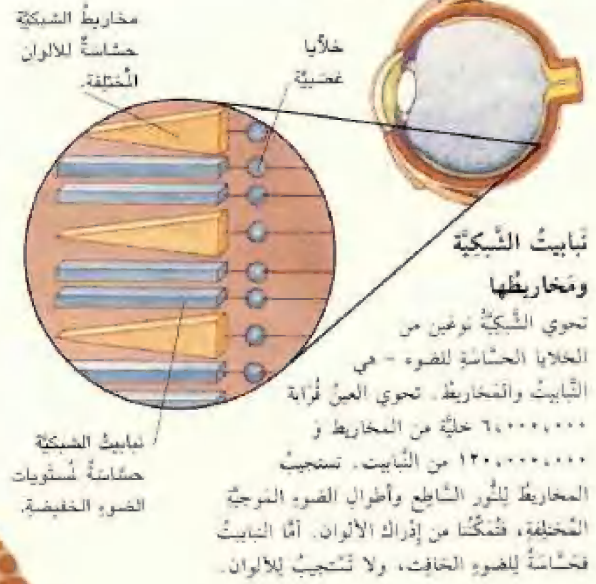 مخاريطُ الشبكيَّة
حسّاسةٌ للألوان
المُختلِفة.
خلايا
عَصَبيَّة
نَبابيتُ الشَّبكِيَّة
ومَخاريطُها
تحوي الشَّبكيَّةُ نوعَين من
الخلايا الحسَّاسَةِ للضوء - هي
النَّبابيتُ والمَخاريطُ. تحوي العينُ قُرابَة
٦،٠٠٠،٠٠٠ خليَّة من المخاريط وَ
١٢٠،٠٠٠،٠٠٠ من النَّبابيت. تستجيبُ
المخاريطُ للنُّور السَّاطِع وأطوالِ الضوءِ المَوجيَّة
المُختلِفةِ، فتُمكِّنُنا من إدْراك الألوان. أمَّا النبابيتُ
فحَسَّاسَةٌ لِلضوءِ الخافِت، ولا تَسْتجيبُ لِلألوان.
نبابيتُ الشبكيَّة
حسَّاسَةٌ لمُستَويات
الضوءِ الخفيضةِ.